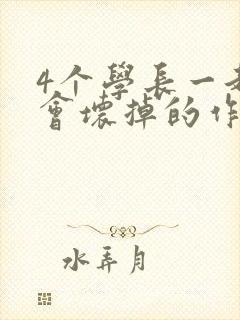 4个學長一起
會壞掉的作
水弄月